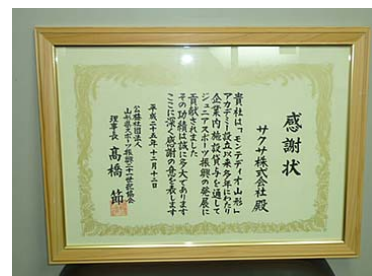 感謝状
サクサ株式会社殿
貴社は「モンテディオ山形」
アカデミー設立以来多年にわたり
企業内施設貸与を通して
ジュニアスポーツ振興の発展に
貢献されました
その功績は誠に多大であります
ここに深く感謝の意を表します
平成二十五年十二月十二日
公益社団法人
山形県スポーツ振興二十一世紀協会
理事長 高橋 節